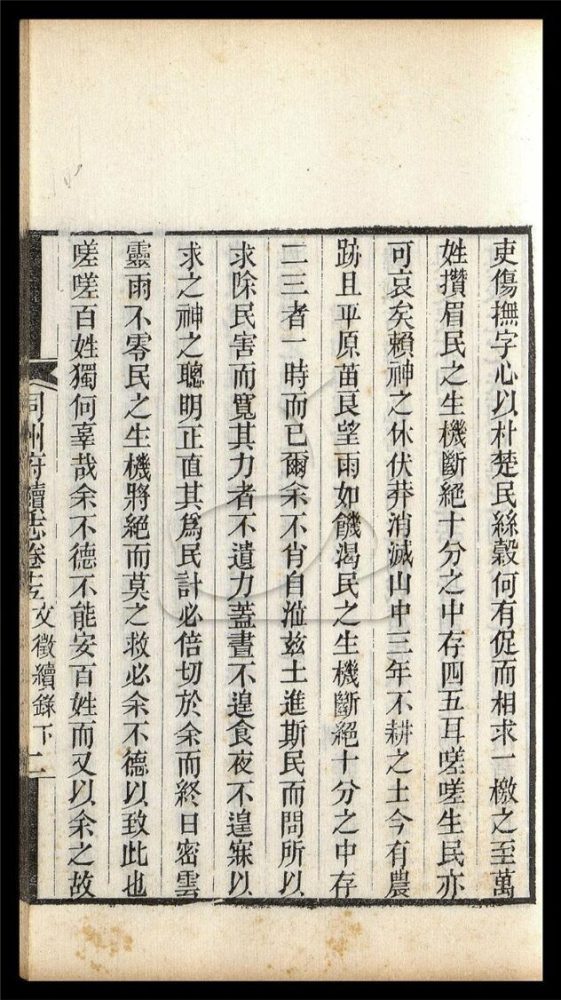 吏傷撫字心以朴楚民絲穀何有促而相求一檄之至萬
姓攢眉民之生機斷絕十分之中存四五耳嗟嗟生民亦
可哀矣賴神之休伏莽消滅山中三年不耕之土今有農
跡且平原苗艮望雨如饑渴民之生機斷絕十分之中存
二三者一時而已爾余不肖自涖茲土進斯民而問所以
求除民害而寬其力者不遺力蓋晝不遑食夜不遑寐以
求之神之聰明正直其爲民計必倍切於余而終日密雲
靈雨不零民之生機將絕而莫之救必余不德以致此也
嗟嗟百姓獨何辜哉余不德不能安百姓而又以余之故
同州府續志卷十五 文徵續錄下 二